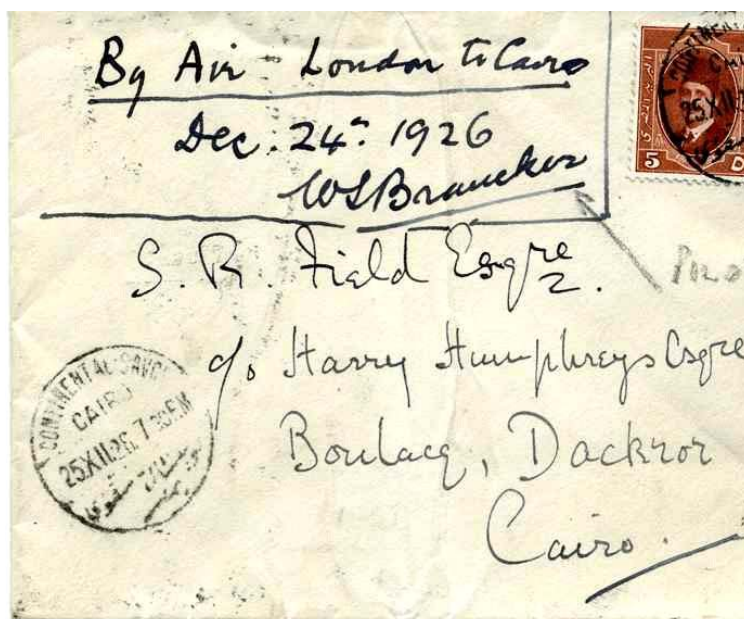 By Air London to Cairo
Dec. 24th 1926
WS Brancker
S. R. Field Esqre
c/o Harry Humphreys Esqre
Boulacq, Dackror
Cairo.
CONTINENTAL SAVO
CAIRO
25 XII 26. 7 30 PM
5
CONTINENTAL
25 XII 2